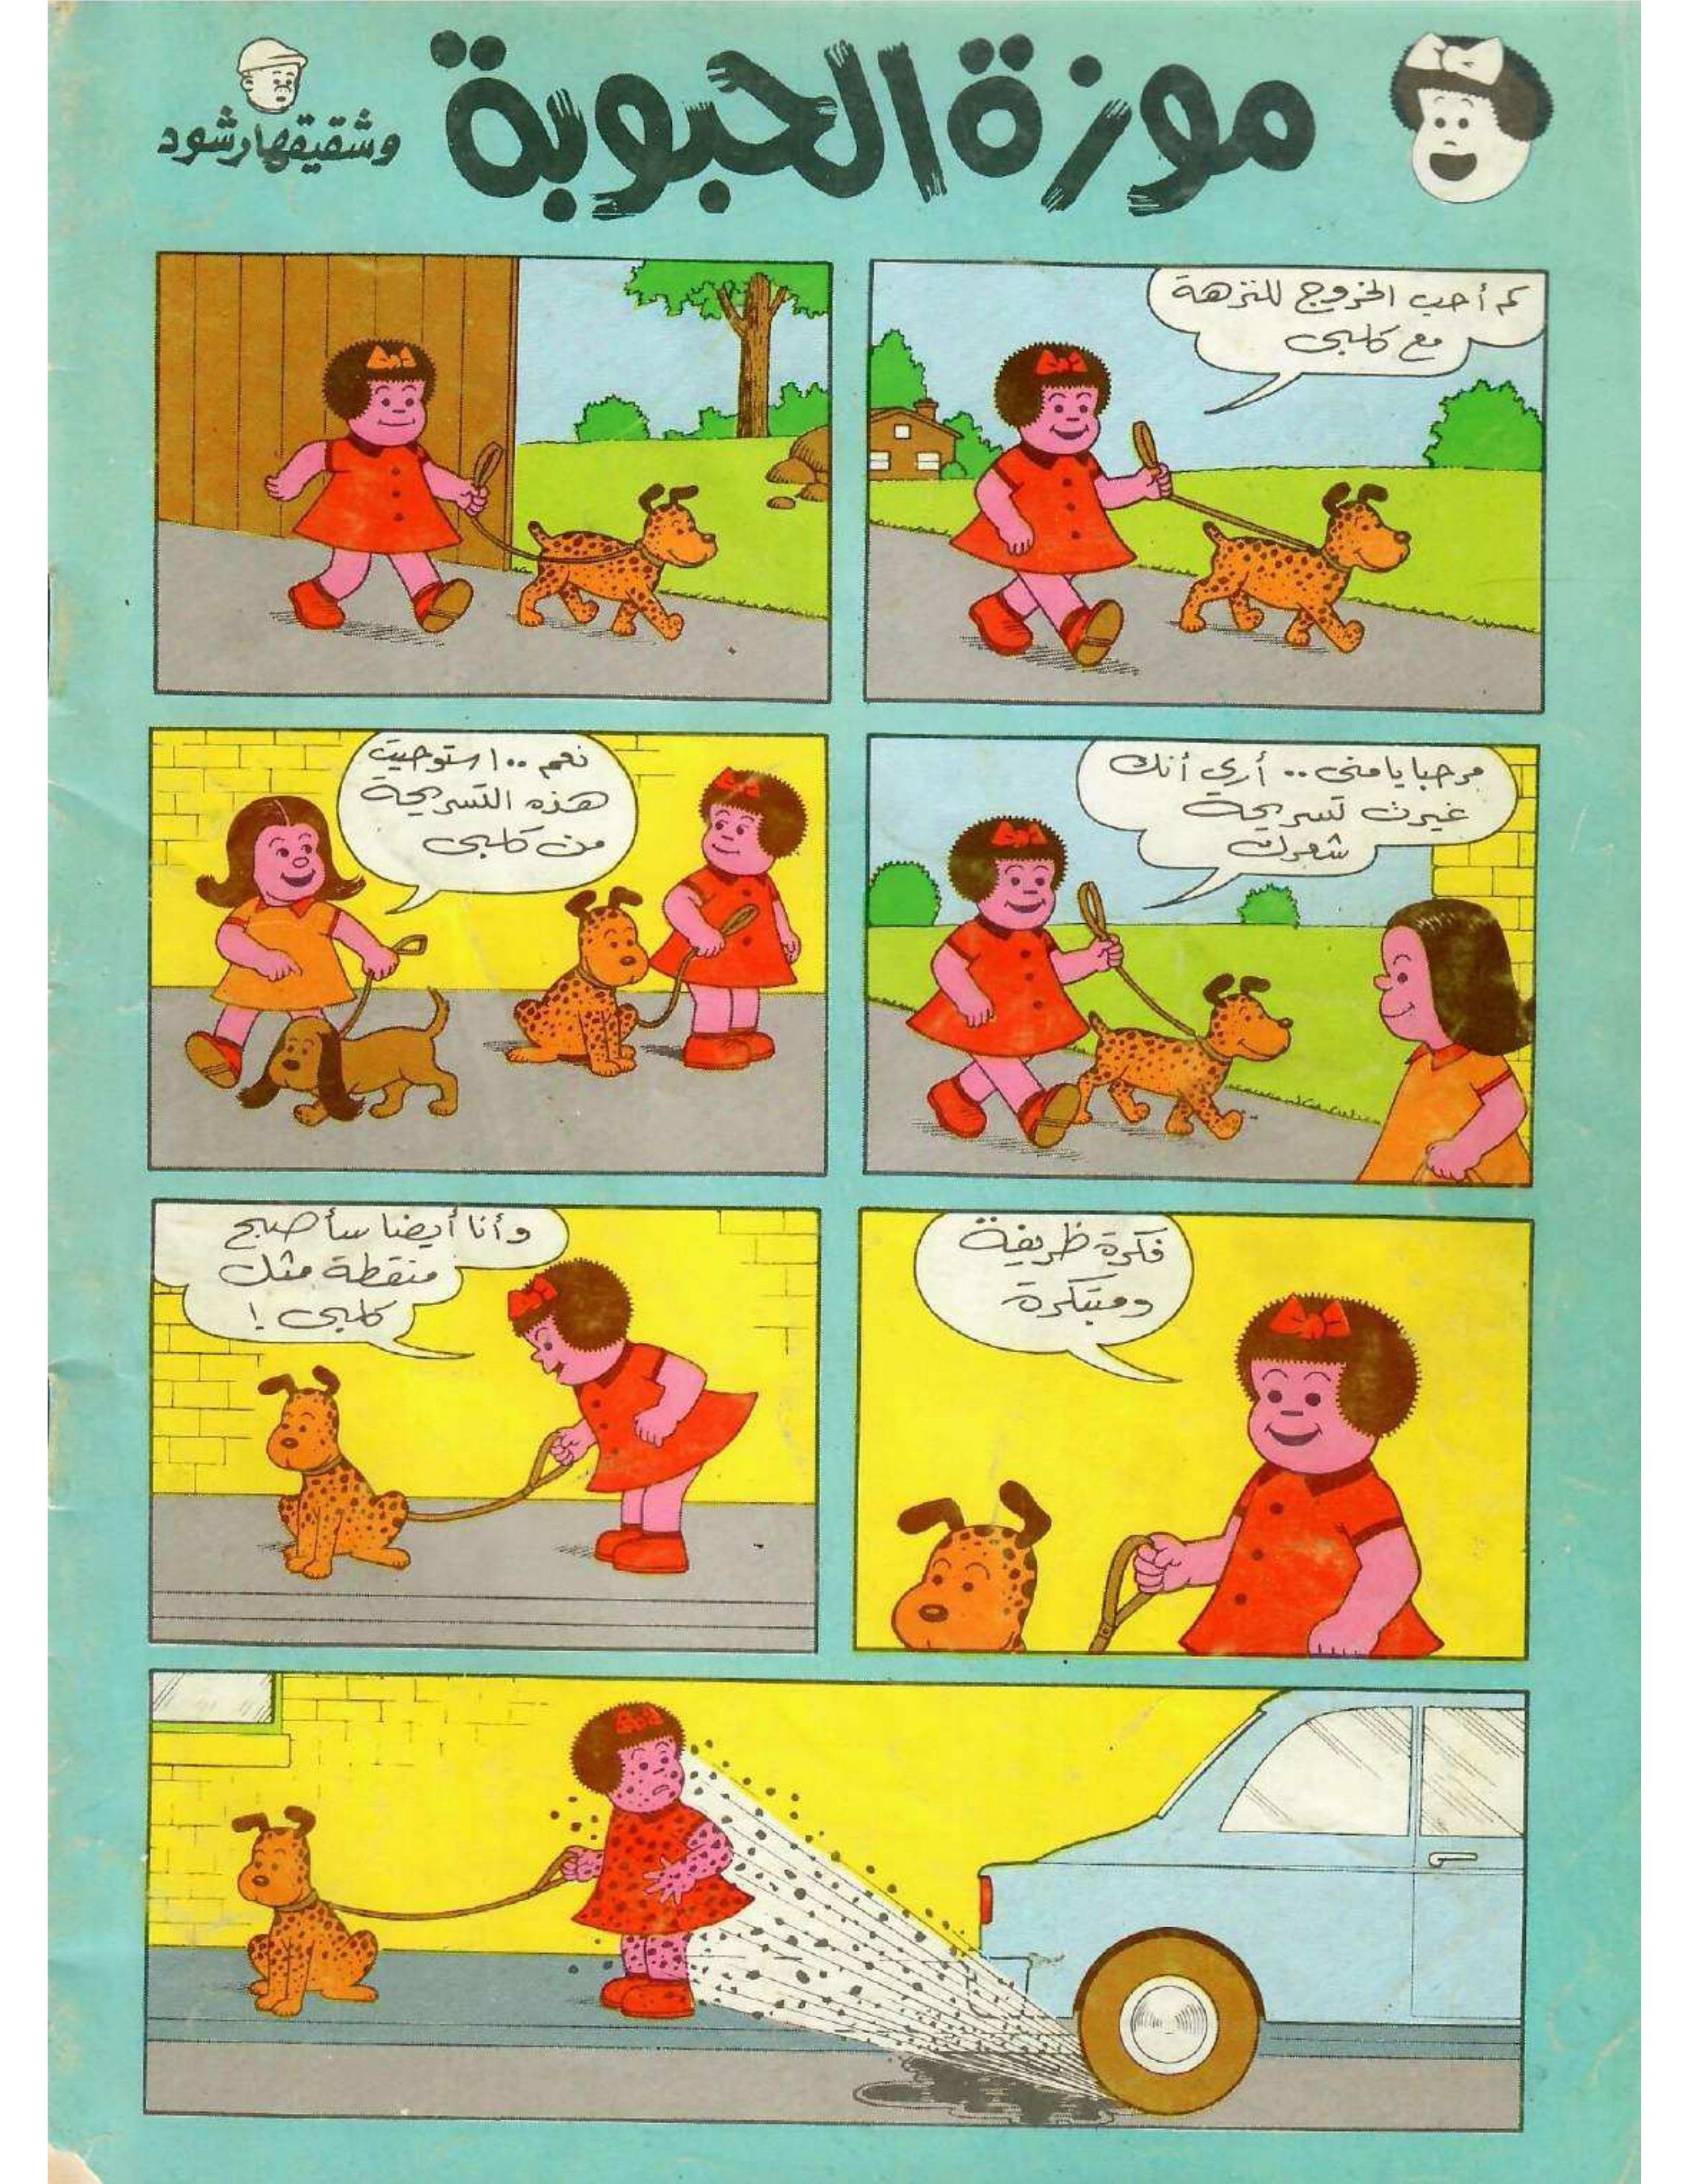 موزة الحبوبة
وشقيقها رشود
كم أحب الخروج للنزهة
مع كلبي
مرحبا يا منى .. أرى أنك
غيرت تسريحة
شعرك
نعم .. استوحيت
هذه التسريحة
من كلبي
فكرة ظريفة
ومبتكرة
وأنا أيضا سأصبح
منقطة مثل
كلبي !